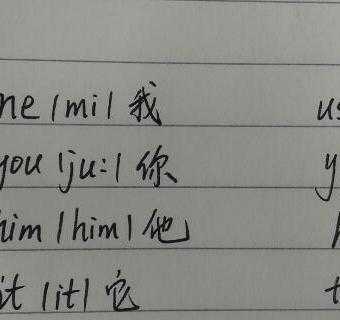 me |mi| 我 us
you |ju:| 你 y
him |him| 他 h
it |it| 它 t